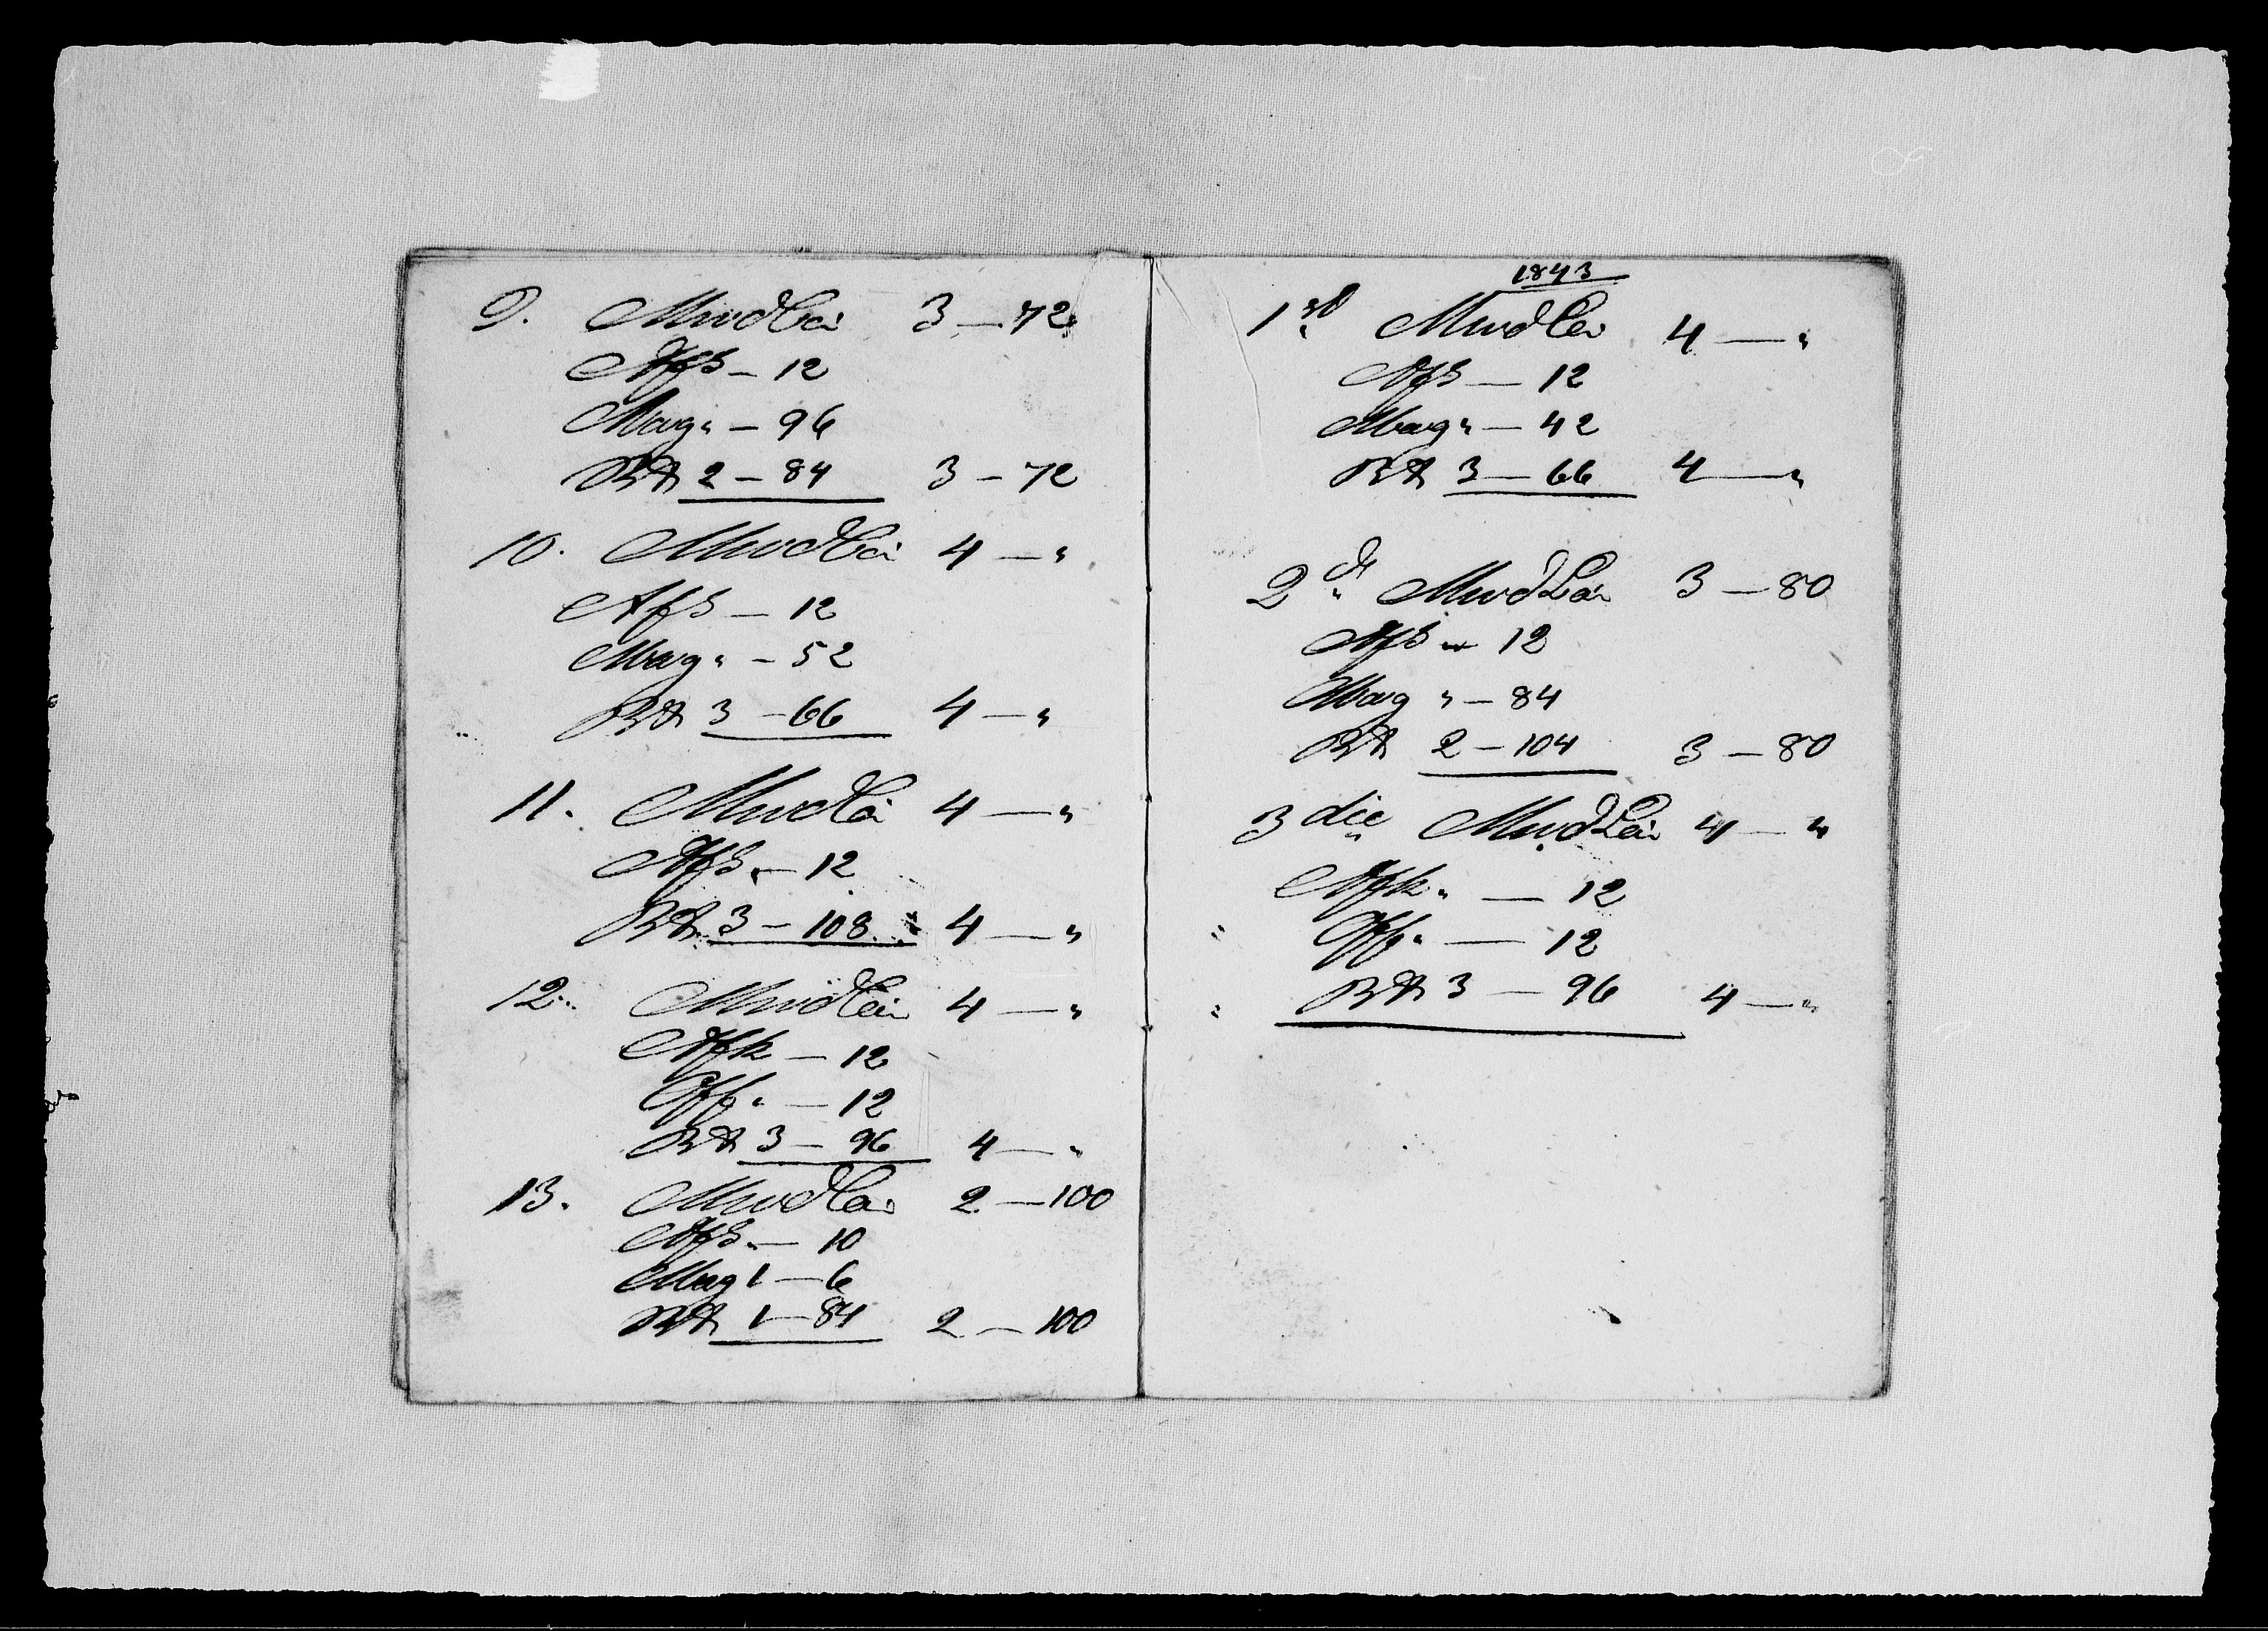 9. MwdLei 3 — 72
Afs — 12
Mag " — 96
Rd 2 — 84 3 — 72
10. MwdLei 4 — "
Afs — 12
Mag " — 52
Rd 3 — 66 4 — "
11. MwdLei 4 — "
Afs " — 12
Rd 3 — 108 4 — "
12. MwdLei 4 — "
Afk — 12
Off " — 12
Rd 3 — 96 4 — "
13. MwdLei 2 — 100
Afs " — 10
Mag 1 — 6
Rd 1 — 84 2 — 100
1843
1st MwdLei 4 — "
Afs — 12
Mag " — 42
Rd 3 — 66 4 — "
2d MwdLei 3 — 80
Afs — 12
Mag " — 84
Rd 2 — 104 3 — 80
3die MwdLei 4 — "
Afk " — 12
" Off " — 12
" Rd 3 — 96 4 — "